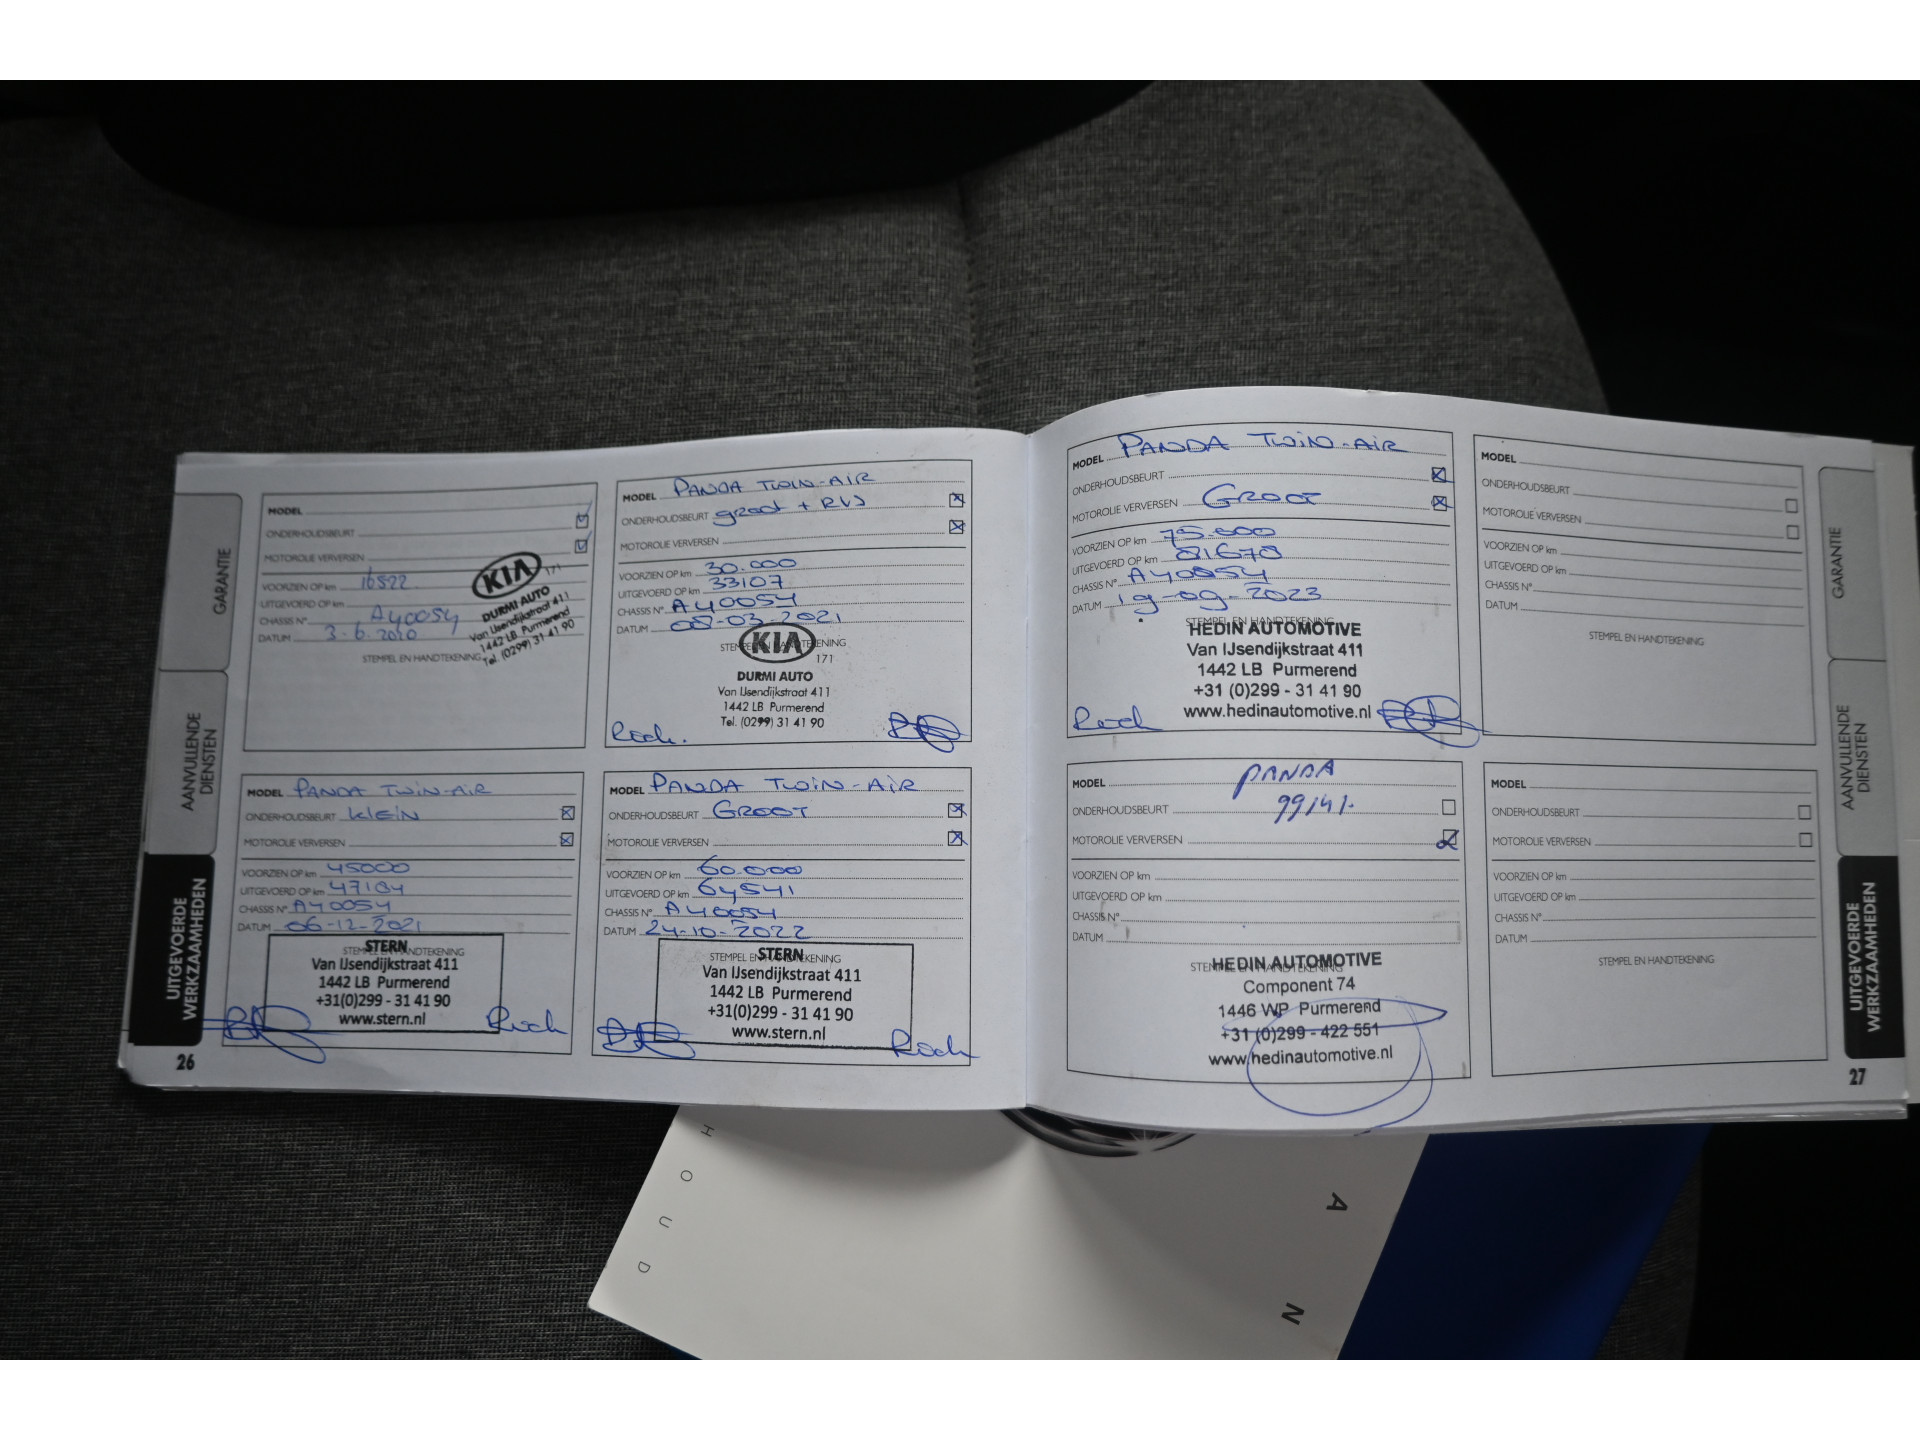 GARANTIE
AANVULLENDE
DIENSTEN
UITGEVOERDE
WERKZAAMHEDEN
26
MODEL
ONDERHOUDSBEURT
MOTOROLIE VERVERSEN
VOORZIEN OP km 16522
UITGEVOERD OP km
CHASSIS N° A40054
DATUM 3-6-2020
STEMPEL EN HANDTEKENING
KIA 171
DURMI AUTO
Van IJsendijkstraat 411
1442 LB Purmerend
Tel. (0299) 31 41 90
MODEL PANDA TWIN-AIR
ONDERHOUDSBEURT groot + RVS
MOTOROLIE VERVERSEN
VOORZIEN OP km 30.000
UITGEVOERD OP km 33107
CHASSIS N° A40054
DATUM 08-03-2021
STEMPEL EN HANDTEKENING
KIA
171
DURMI AUTO
Van IJsendijkstraat 411
1442 LB Purmerend
Tel. (0299) 31 41 90
MODEL PANDA TWIN-AIR
ONDERHOUDSBEURT KLEIN
MOTOROLIE VERVERSEN
VOORZIEN OP km 45000
UITGEVOERD OP km 47184
CHASSIS N° A40054
DATUM 06-12-2021
STEMPEL EN HANDTEKENING
STERN
Van IJsendijkstraat 411
1442 LB Purmerend
+31(0)299 - 31 41 90
www.stern.nl
MODEL PANDA TWIN-AIR
ONDERHOUDSBEURT GROOT
MOTOROLIE VERVERSEN
VOORZIEN OP km 60.000
UITGEVOERD OP km 64541
CHASSIS N° A40054
DATUM 24-10-2022
STEMPEL EN HANDTEKENING
STERN
Van IJsendijkstraat 411
1442 LB Purmerend
+31(0)299 - 31 41 90
www.stern.nl
MODEL PANDA TWIN-AIR
ONDERHOUDSBEURT
MOTOROLIE VERVERSEN GROOT
VOORZIEN OP km 75.000
UITGEVOERD OP km 81678
CHASSIS N° A40054
DATUM 19-09-2023
STEMPEL EN HANDTEKENING
HEDIN AUTOMOTIVE
Van IJsendijkstraat 411
1442 LB Purmerend
+31 (0)299 - 31 41 90
www.hedinautomotive.nl
MODEL
ONDERHOUDSBEURT
MOTOROLIE VERVERSEN
VOORZIEN OP km
UITGEVOERD OP km
CHASSIS N°
DATUM
STEMPEL EN HANDTEKENING
MODEL PANDA
ONDERHOUDSBEURT 99141.
MOTOROLIE VERVERSEN
VOORZIEN OP km
UITGEVOERD OP km
CHASSIS N°
DATUM
STEMPEL EN HANDTEKENING
HEDIN AUTOMOTIVE
Component 74
1446 WP Purmerend
+31 (0)299 - 422 551
www.hedinautomotive.nl
MODEL
ONDERHOUDSBEURT
MOTOROLIE VERVERSEN
VOORZIEN OP km
UITGEVOERD OP km
CHASSIS N°
DATUM
STEMPEL EN HANDTEKENING
GARANTIE
AANVULLENDE
DIENSTEN
UITGEVOERDE
WERKZAAMHEDEN
27
H O U D
A N